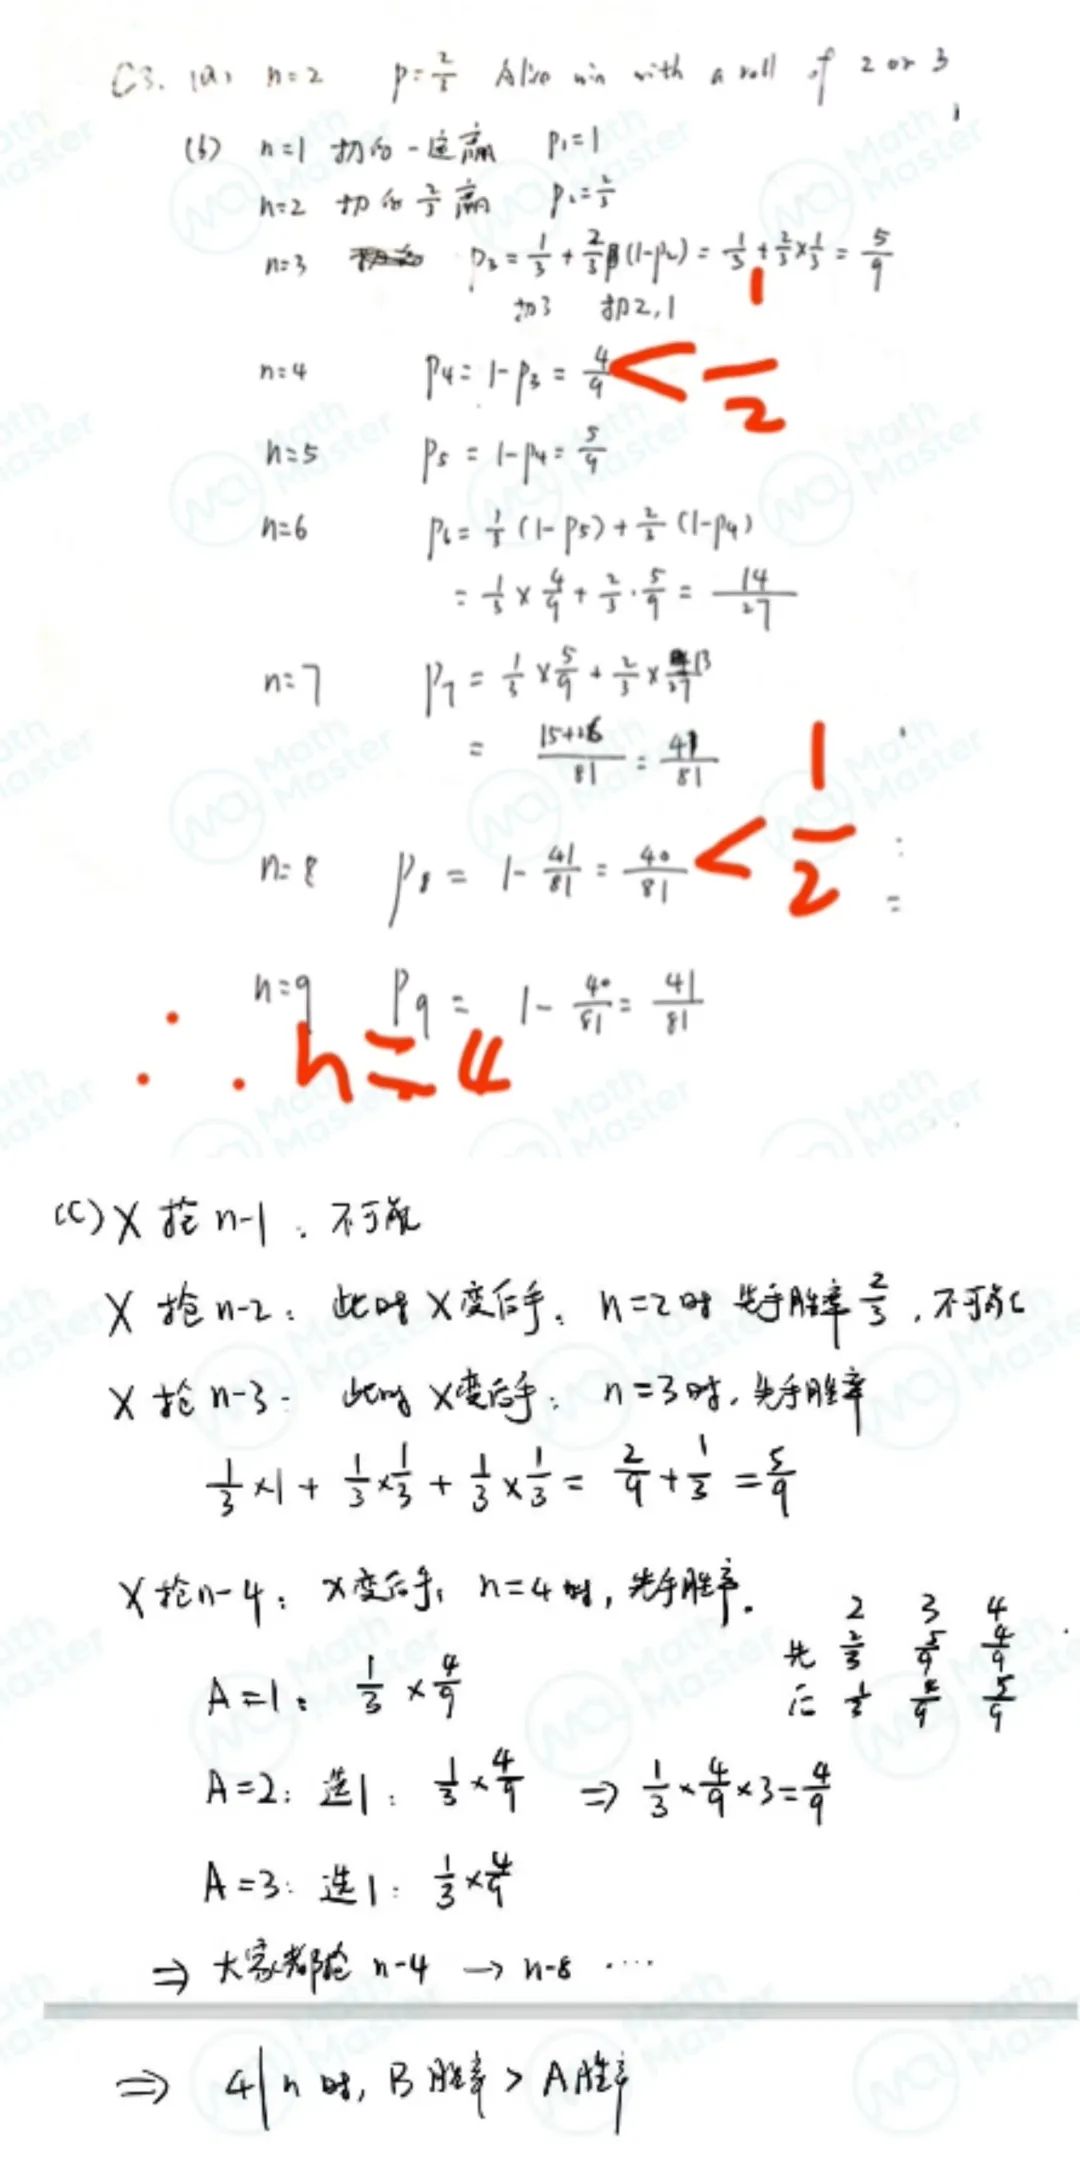 C3. (a) n=2 p=2/3 Alice win with a roll of 2 or 3
(b) n=1 扔任一定赢 p₁=1
n=2 扔有2/3赢 p₂=2/3
n=3 p₃=1/3+2/3(1-p₂)=1/3+2/3×1/3=5/9
扔3 扔2,1
n=4 p₄=1-p₃=4/9<1/2
n=5 p₅=1-p₄=5/9
n=6 p₆=1/3(1-p₅)+2/3(1-p₄)
=1/3×4/9+2/3·5/9=14/27
n=7 p₇=1/3×5/9+2/3×13/27
=15+26/81=41/81
n=8 p₈=1-41/81=40/81<1/2
n=9 p₉=1-40/81=41/81
∴ n=4
(C) X抢n-1:不可能
X抢n-2:此时X变后手。n=2时先手胜率2/3,不可能
X抢n-3:此时X变后手:n=3时,先手胜率
1/3×1+1/3×1/3+1/3×1/3=2/9+1/3=5/9
X抢n-4:X变后手,n=4时,先手胜率.
2 3 4
先 2/3 5/9 4/9
后 1/3 4/9 5/9
A=1:1/3×4/9
A=2:选1:1/3×4/9 ⇒ 1/3×4/9×3=4/9
A=3:选1:1/3×4/9
⇒ 大家都抢n-4 → n-8 ····
⇒ 4|n时,B胜率>A胜率
Math Master